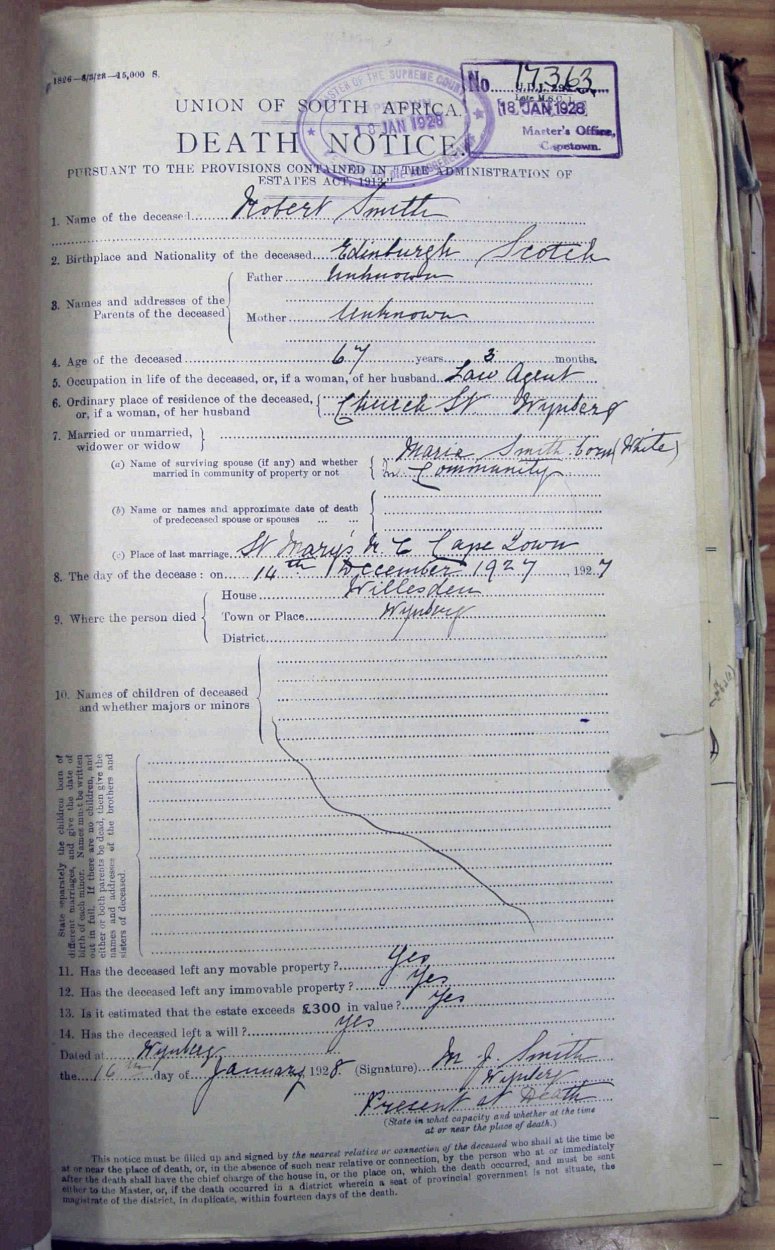 1826—8/2/28—15,000 S.
MASTER OF THE SUPREME COURT
18 JAN 1928
No. 17363
18 JAN 1928
Master's Office,
Capetown.
UNION OF SOUTH AFRICA.
DEATH NOTICE.
PURSUANT TO THE PROVISIONS CONTAINED IN "THE ADMINISTRATION OF
ESTATES ACT, 1913."
1. Name of the deceased Robert Smith
2. Birthplace and Nationality of the deceased Edinburgh Scotch
3. Names and addresses of the Parents of the deceased
Father Unknown
Mother Unknown
4. Age of the deceased 67 years 3 months.
5. Occupation in life of the deceased, or, if a woman, of her husband Law Agent
6. Ordinary place of residence of the deceased, or, if a woman, of her husband Church St Wynberg
7. Married or unmarried, widower or widow
(a) Name of surviving spouse (if any) and whether married in community of property or not
Maria Smith born (White)
In Community
(b) Name or names and approximate date of death of predeceased spouse or spouses ... ...
(c) Place of last marriage St Mary's R C Cape Town
8. The day of the decease: on 14th December 1927, 1927
9. Where the person died
House Willesden
Town or Place Wynberg
District
10. Names of children of deceased and whether majors or minors
State separately the children born of
different marriages, and give the date of
birth of each minor. Names must be written
out in full. If there are no children, and
either or both parents be dead, then give the
names and addresses of the brothers and
sisters of deceased.
11. Has the deceased left any movable property? Yes
12. Has the deceased left any immovable property? Yes
13. Is it estimated that the estate exceeds £300 in value? Yes
14. Has the deceased left a will? Yes
Dated at Wynberg
the 16th day of January 1928. (Signature) M. J. Smith
Wynberg
Present at Death
(State in what capacity and whether at the time
at or near the place of death.)
This notice must be filled up and signed by the nearest relative or connection of the deceased who shall at the time be
at or near the place of death, or, in the absence of such near relative or connection, by the person who at or immediately
after the death shall have the chief charge of the house in, or the place on, which the death occurred, and must be sent
either to the Master, or, if the death occurred in a district wherein a seat of provincial government is not situate, the
magistrate of the district, in duplicate, within fourteen days of the death.